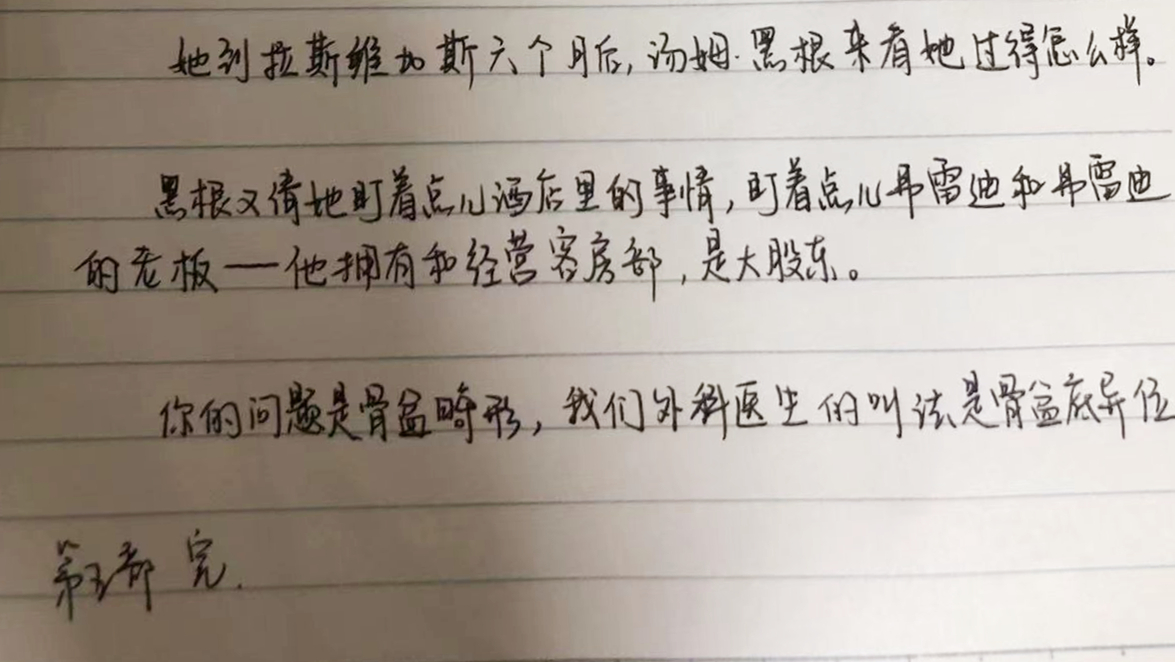 她到拉斯维加斯六个月后,汤姆·黑根来看她过得怎么样。
黑根又倩她盯着点儿酒店里的事情,盯着点儿弗雷迪和弗雷迪
的老板——他拥有和经营客房部,是大股东。
你的问题是骨盆畸形,我们外科医生的叫法是骨盆底异位
第五部 完.